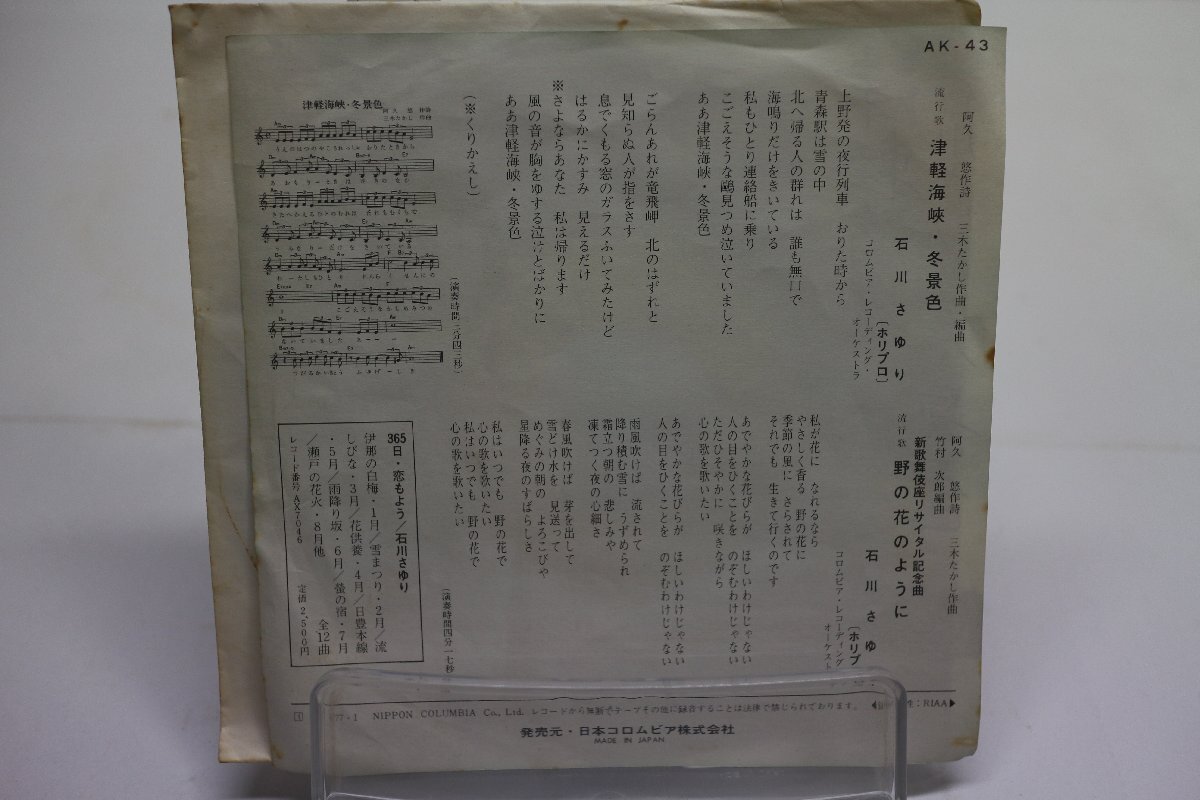 AK-43
阿久 悠作詩 三木たかし作曲・編曲
流行歌 津軽海峡・冬景色
石川さゆり
〔ホリプロ〕
コロムビア・レコーディング・
オーケストラ
上野発の夜行列車 おりた時から
青森駅は雪の中
北へ帰る人の群れは 誰も無口で
海鳴りだけをきいている
私もひとり連絡船に乗り
こごえそうな鷗見つめ泣いていました
ああ津軽海峡・冬景色
ごらんあれが竜飛岬 北のはずれと
見知らぬ人が指をさす
息でくもる窓のガラスふいてみたけど
はるかにかすみ 見えるだけ
※さよならあなた 私は帰ります
風の音が胸をゆする泣けとばかりに
ああ津軽海峡・冬景色
(※くりかえし)
(演奏時間三分四三秒)
津軽海峡・冬景色
阿久 悠 作詩
三木たかし 作曲
阿久 悠作詩 三木たかし作曲
竹村 次郎編曲
新歌舞伎座リサイタル記念曲
流行歌 野の花のように
石川さゆ
〔ホリプ
コロムビア・レコーディング
オーケスト
私が花に なれるなら
やさしく香る 野の花に
季節の風に さらされて
それでも 生きて行くのです
あでやかな花びらが ほしいわけじゃない
人の目をひくことを のぞむわけじゃない
ただひそやかに 咲きながら
心の歌を歌いたい
あでやかな花びらが ほしいわけじゃない
人の目をひくことを のぞむわけじゃない
雨風吹けば 流されて
降り積む雪に うずめられ
霜立つ朝の 悲しみや
凍てつく夜の心細さ
春風吹けば 芽を出して
雪どけ水を 見送って
めぐみの朝の よろこびや
星降る夜のすばらしさ
私はいつでも 野の花で
心の歌を歌いたい
私はいつでも 野の花で
心の歌を歌いたい
(演奏時間四分一七秒)
365日・恋もよう/石川さゆり
伊那の白梅・1月/雪まつり・2月/流
しびな・3月/花供養・4月/日豊本線
・5月/雨降り坂・6月/螢の宿・7月
/瀬戸の花火・8月他 全12曲
レコード番号 AX7046 定価 2,500円
77・1 NIPPON COLUMBIA Co., Ltd. レコードから無断でテープその他に録音することは法律で禁じられております。
性:RIAA▶
発売元・日本コロムビア株式会社
MADE IN JAPAN